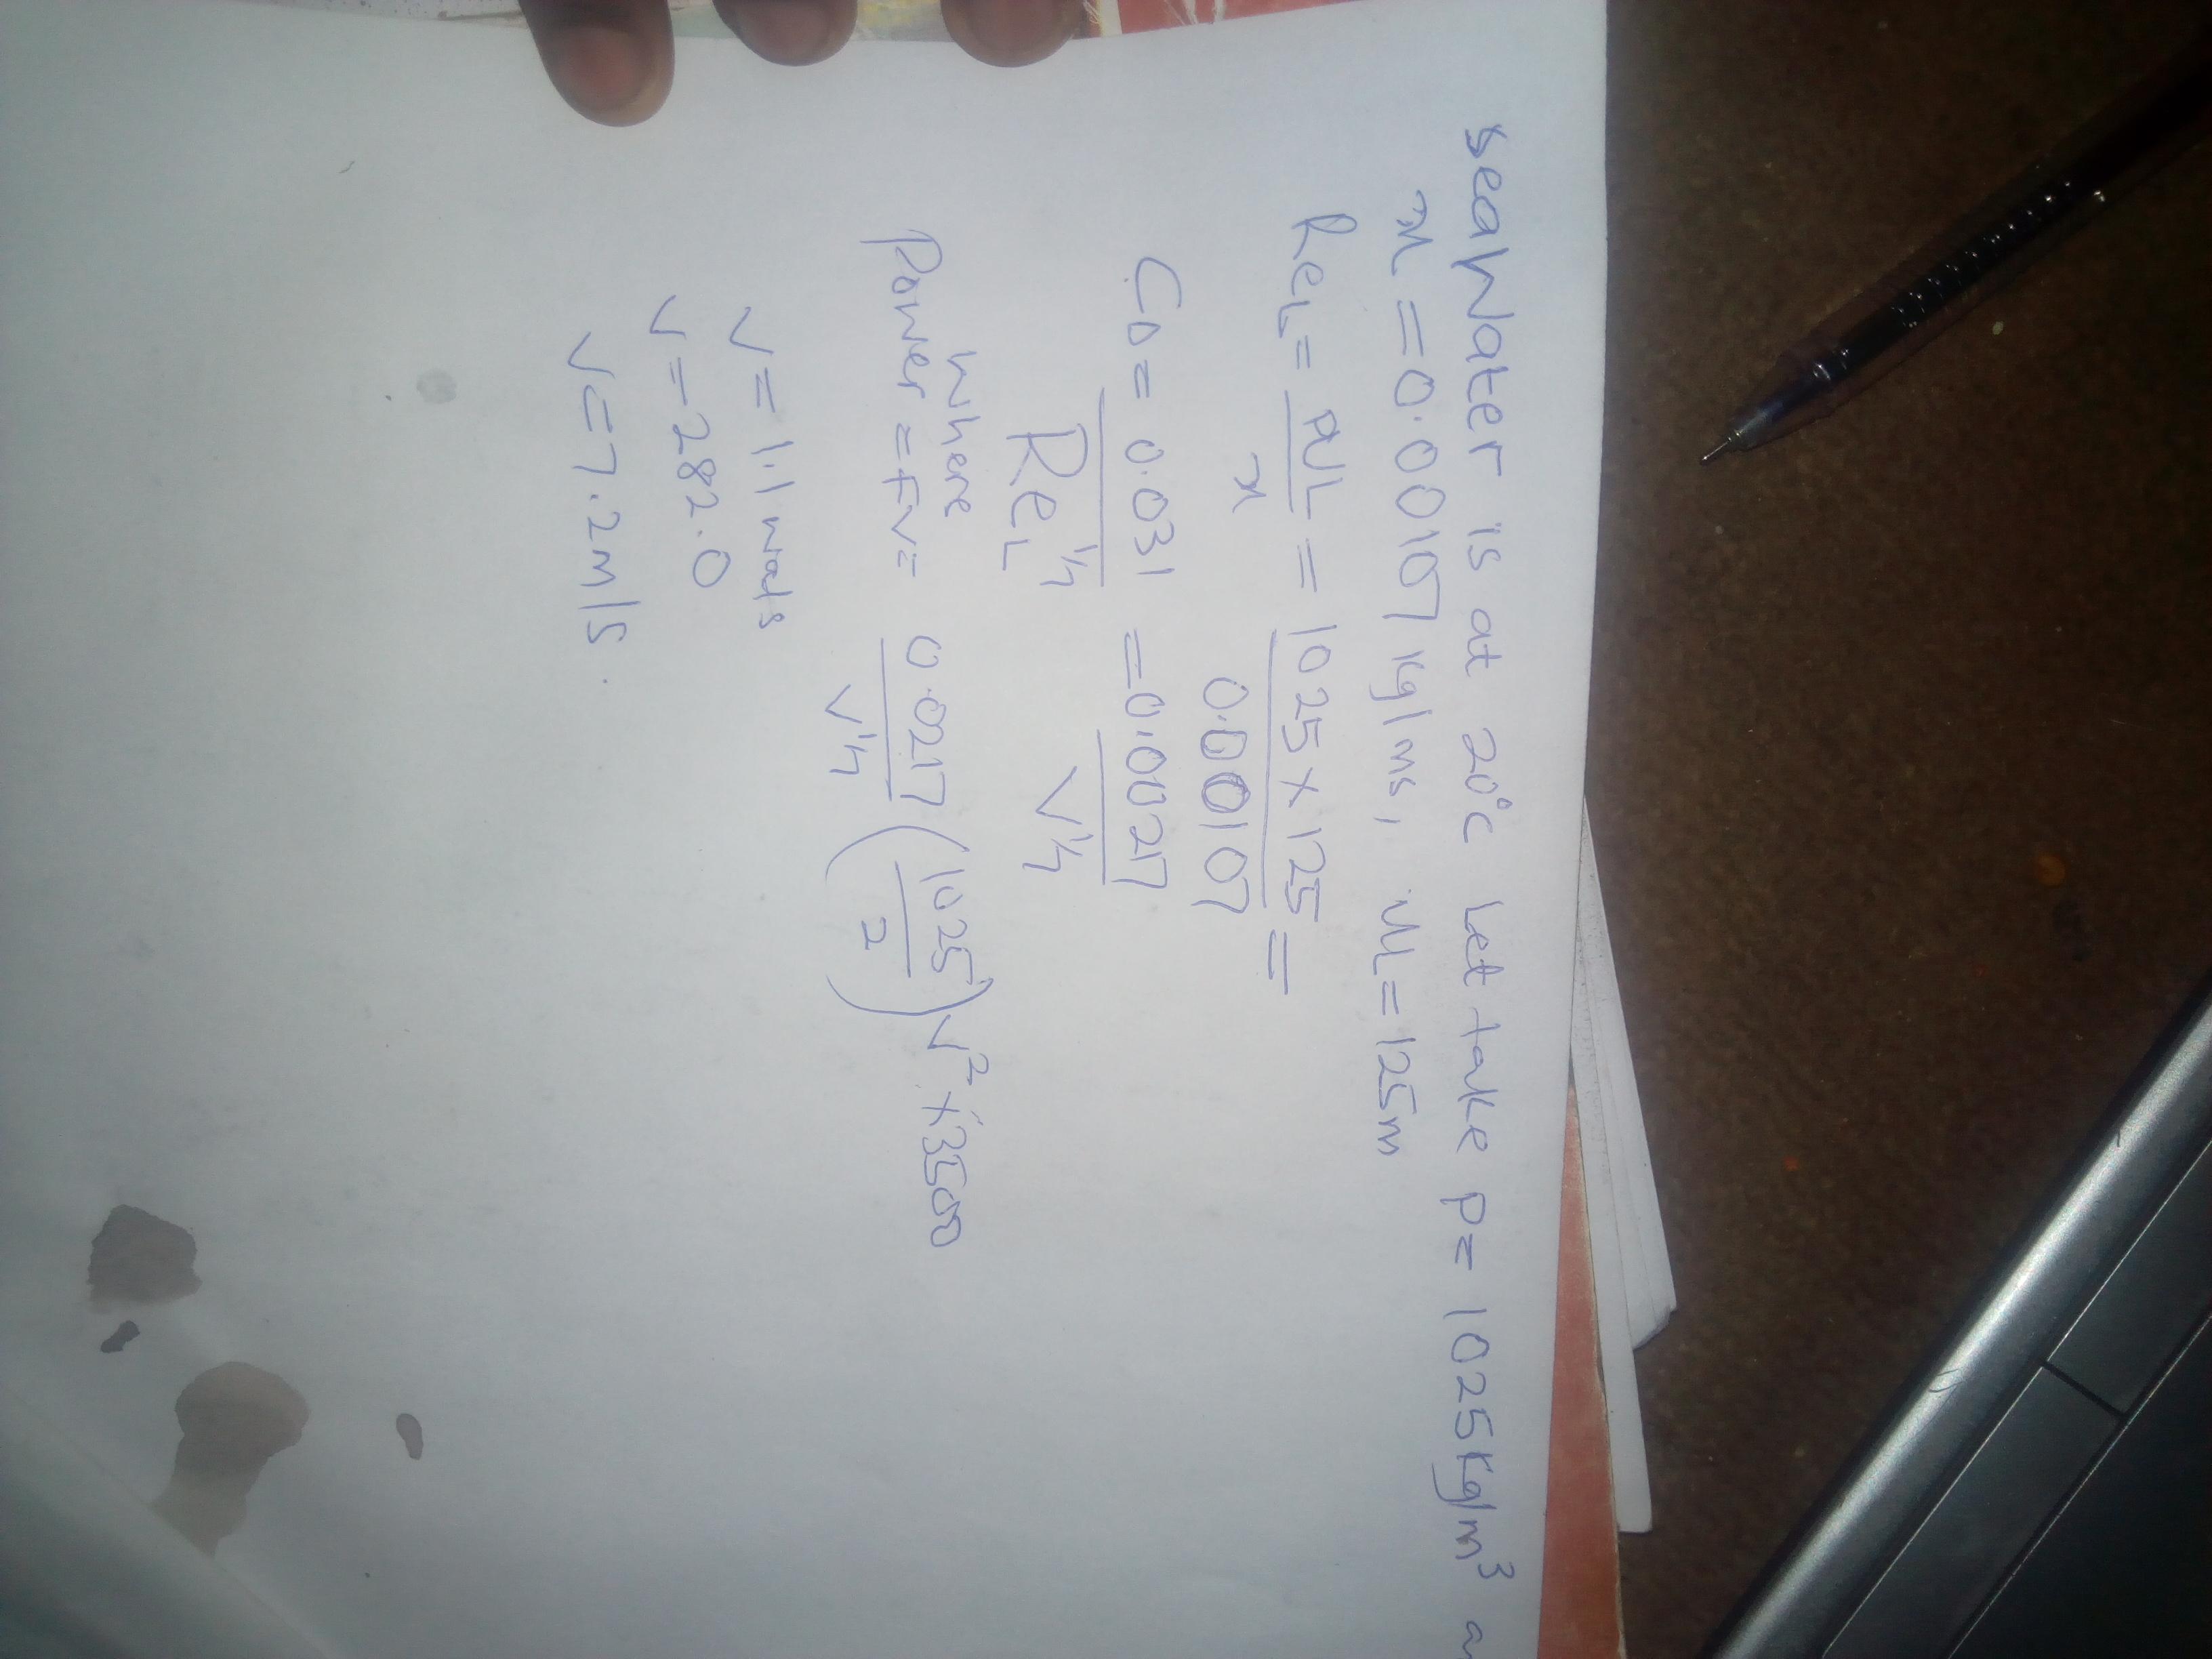 seaWater is at 20°c let take p= 1025kg/m³ a
μ = 0.00107 kg/ms, ML=125m
ReL= PUL/μ = 1025 x 125/0.00107 =
CD= 0.031/ReL^1/7 = 0.00217/V^1/7
where
Power = FV= 0.0217/V^1/7 (1025/2)V² x3500
V = 1.1
V = 282.0
V = 7.2m/s.